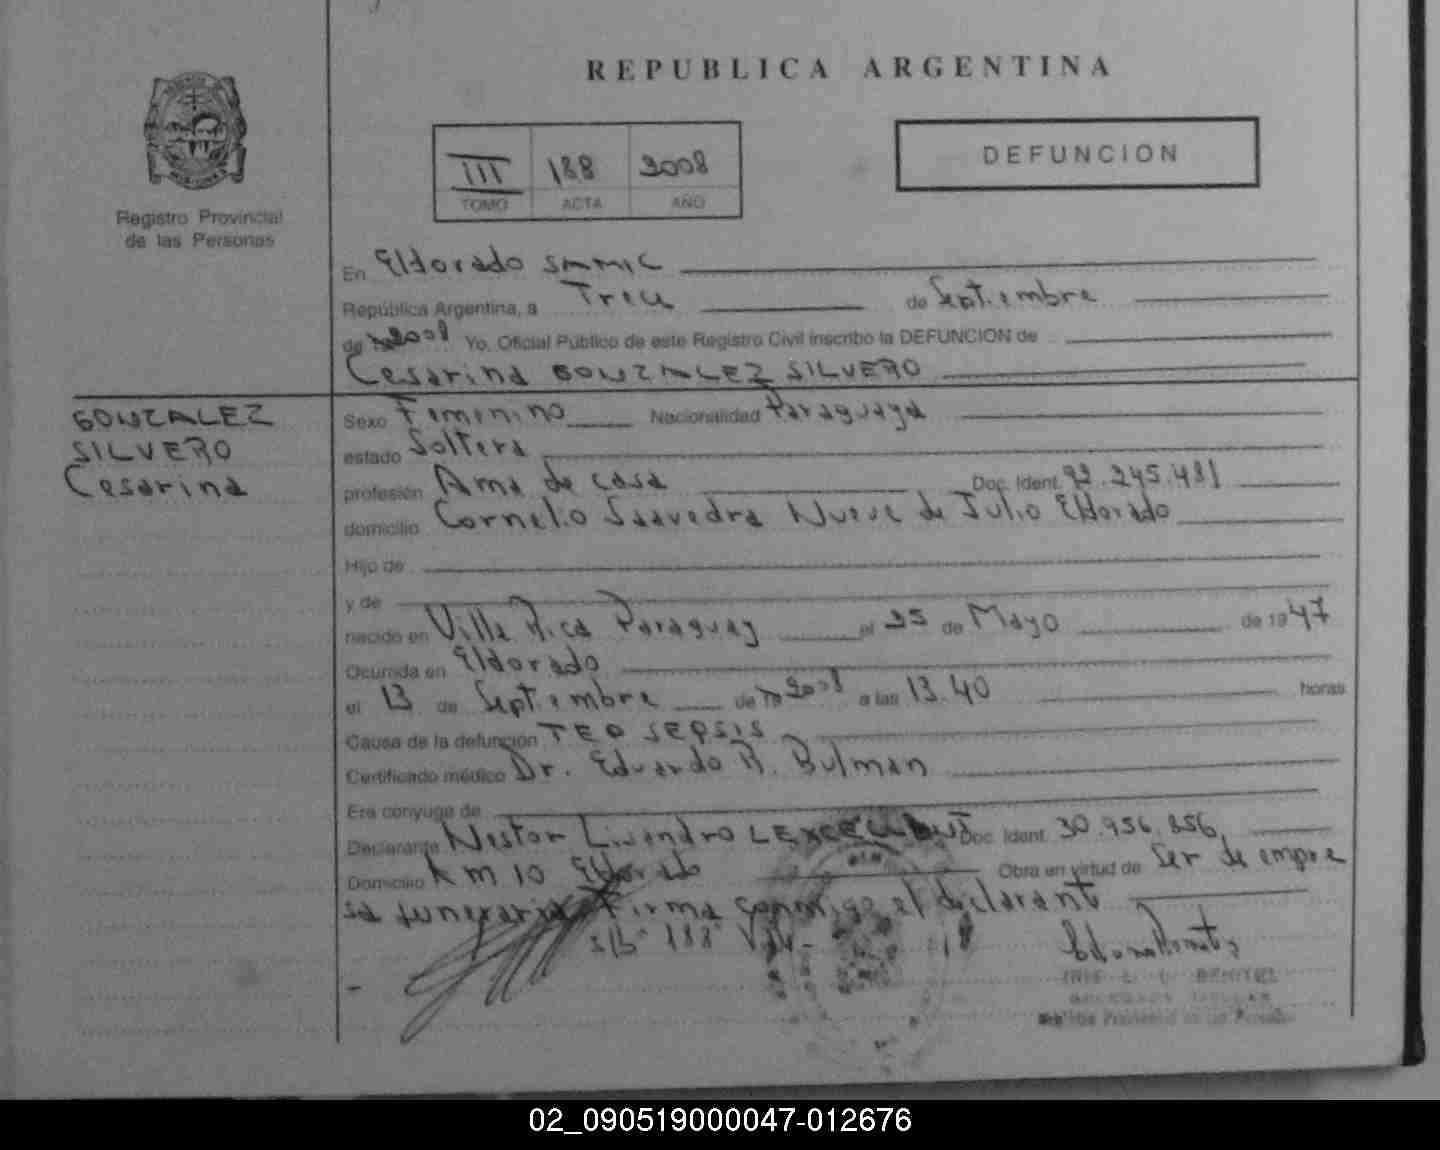 REPUBLICA ARGENTINA
III 188 2008
TOMO ACTA AÑO
DEFUNCION
Registro Provincial
de las Personas
En Eldorado SAMIC
República Argentina, a Trece de Septiembre
de 2008 Yo, Oficial Público de este Registro Civil inscribo la DEFUNCION de
Cesarina GONZALEZ SILVERO
GONZALEZ
SILVERO
Cesarina
Sexo Femenino Nacionalidad Paraguaya
estado Soltera
profesión Ama de casa Doc. Ident. 92.245.481
domicilio Cornelio Saavedra Nueve de Julio Eldorado
Hijo de
y de
nacido en Villa Rica Paraguay el 25 de Mayo de 1947
Ocurrida en Eldorado
el 13 de Septiembre de 19 2008 a las 13.40 horas
Causa de la defunción TEP SEPSIS
Certificado médico Dr. Eduardo R. Bulman
Era cónyuge de
Declarante Nestor Lisandro Doc. Ident. 30.956.856
Domicilio Km 10 Eldorado Obra en virtud de Ser de empre
sa funeraria Firma conmigo el declarante
188
BENITEZ
02_090519000047-012676